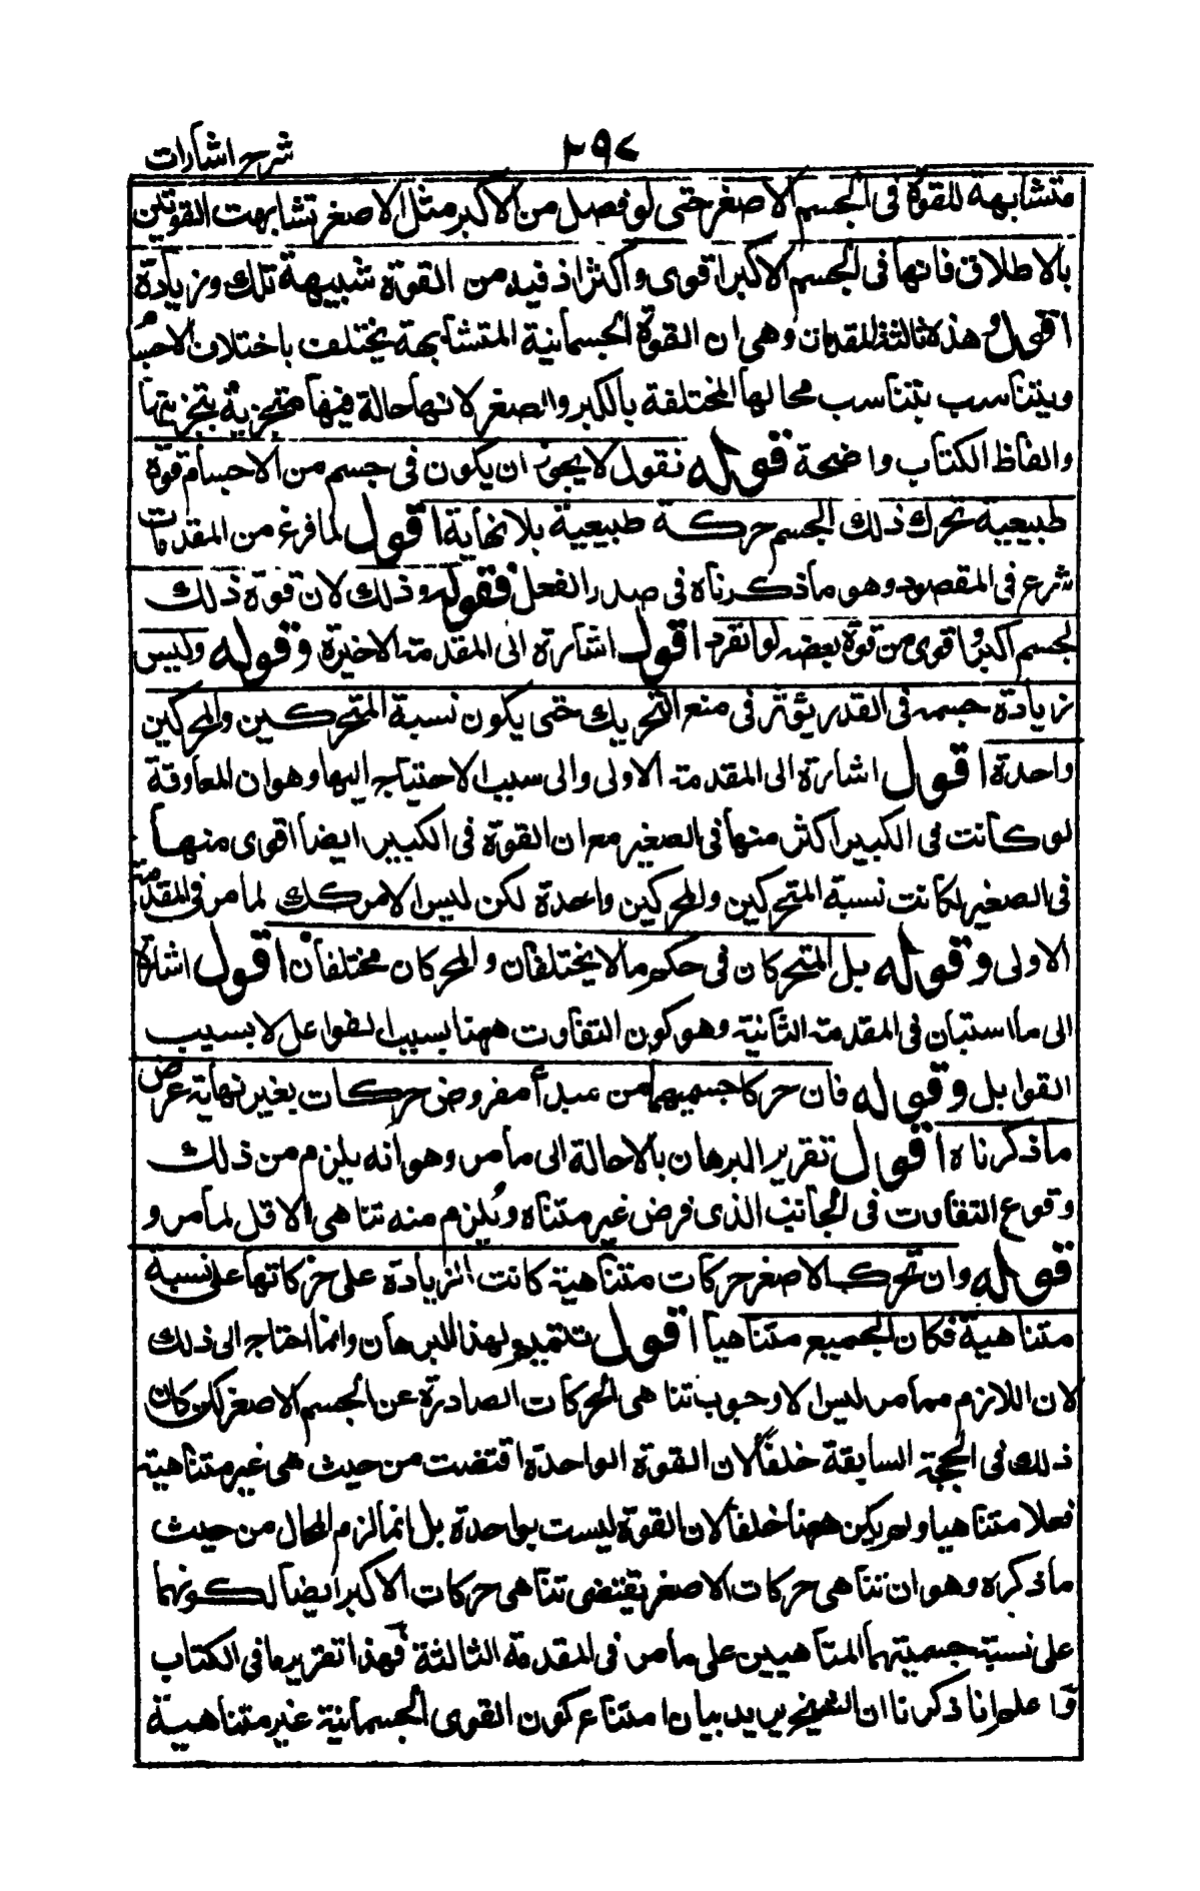 شرح اشارات ٢٩٧
متشابهة للقوة فى الجسم الاصغر حتى لو فصل من الاكبر مثل الاصغر تشابهت القوتين
بالاطلاق فانها فى الجسم الاكبر اقوى واكثر اذ فيه من القوة شبيهة تلك وزيادة
اقول وهذه ثالثة المقدمات وهى ان القوة الجسمانية المتشابهة يختلف باختلاف الاجسام
ويتناسب بتناسب محالها المختلفة بالكبر والصغر لانها حالة فيها متجزية بتجزيتها
والفاظ الكتاب واضحة قوله نقول لا يجوز ان يكون فى جسم من الاجسام قوة
طبيعية تحرك ذلك الجسم حركة طبيعية بلا نهاية اقول لما فرغ من المقدمات
شرع فى المقصود وهو ما ذكرناه فى صدر الفصل فقوله وذلك لان قوة ذلك
الجسم اكبر واقوى من قوة بعضه لو انفرد اقول اشارة الى المقدمة الاخيرة وقوله وليس
زيادة جسمه فى القدر يؤثر فى منع التحريك حتى يكون نسبة المتحركين والمحركين
واحدة اقول اشارة الى المقدمة الاولى والى سبب الاحتياج اليها وهو ان المعاوقة
لو كانت فى الكبير اكثر منها فى الصغير مع ان القوة فى الكبير ايضا اقوى منها
فى الصغير لكانت نسبة المتحركين والمحركين واحدة لكن ليس الامر كك لما مر فى المقدمة
الاولى وقوله بل المتحركان فى حكم ما لا يختلفان والمحركان مختلفان اقول اشارة
الى ما استبان فى المقدمة الثانية وهو كون التفاوت ههنا بسبب الفواعل لا بسبب
القوابل وقوله فان حركا جسميهما من مبدأ مفروض حركات بغير نهاية عرض
ما ذكرناه اقول تقرير البرهان بالاحالة الى ما مر وهو انه يلزم من ذلك
وقوع التفاوت فى الجانب الذى فرض غير متناه ويلزم منه تناهى الاقل لما مر و
قوله وان تحرك الاصغر حركات متناهية كانت الزيادة على حركاتها على نسبة
متناهية فكان الجميع متناهيا اقول تتميم لهذا البرهان وانما احتاج الى ذلك
لان اللازم مما مر ليس الا وجوب تناهى الحركات الصادرة عن الجسم الاصغر لكن كان
ذلك فى الحجة السابقة خلفا لان القوة الواحدة اقتضت من حيث هى غير متناهية
فعلا متناهيا ولم يكن ههنا خلفا لان القوة ليست بواحدة بل انما لزم المحال من حيث
ما ذكره وهو ان تناهى حركات الاصغر يقتضى تناهى حركات الاكبر ايضا لكونهما
على نسبة جسميتهما المتناهيين على ما مر فى المقدمة الثالثة فهذا تقرير ما فى الكتاب
واعلم انا ذكرنا ان الشيخ يريد بيان امتناع كون القوى الجسمانية غير متناهية